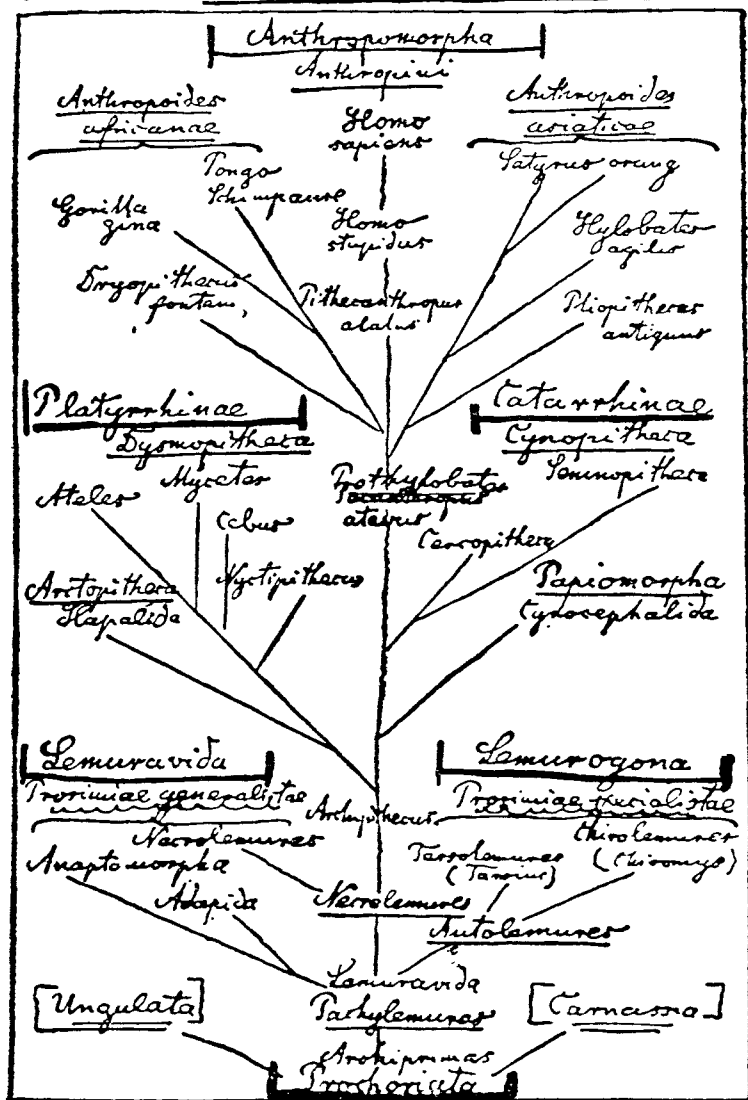 Anthropomorpha
Anthropini
Anthropoides
africanae
Homo
sapiens
Anthropoides
asiaticae
Pongo
Schimpanse
Satyrus orang
Gorilla
gina
Homo
stupidus
Hylobates
agilis
Dryopithecus
fontani
Pithecanthropus
alalus
Pliopithecus
antiquus
Platyrrhinae
Catarrhinae
Dysmopitheca
Cynopitheca
Mycetes
Ateles
Cebus
Prothylobates
atavus
Semnopitheca
Cercopitheca
Nyctipithecus
Arctopitheca
Hapalida
Papiomorpha
Cynocephalida
Lemuravida
Lemurogona
Prosimiae generalistae
Prosimiae specialistae
Archipithecus
Necrolemures
Anaptomorpha
Adapida
Chirolemures
(Chiromys)
Tarsolemures
(Tarsius)
Necrolemures
Autolemures
Lemuravida
Pachylemures
[Ungulata]
[Carnassia]
Archiprimas
Prochoriata